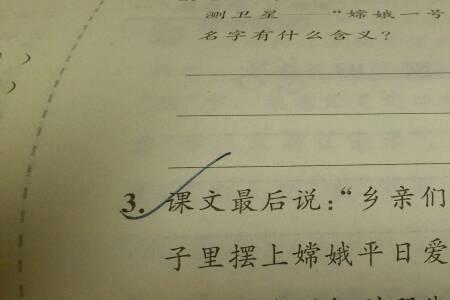 测卫星——“嫦娥一号
名字有什么含义？
）
）
3. 课文最后说：“乡亲们
子里摆上嫦娥平日爱